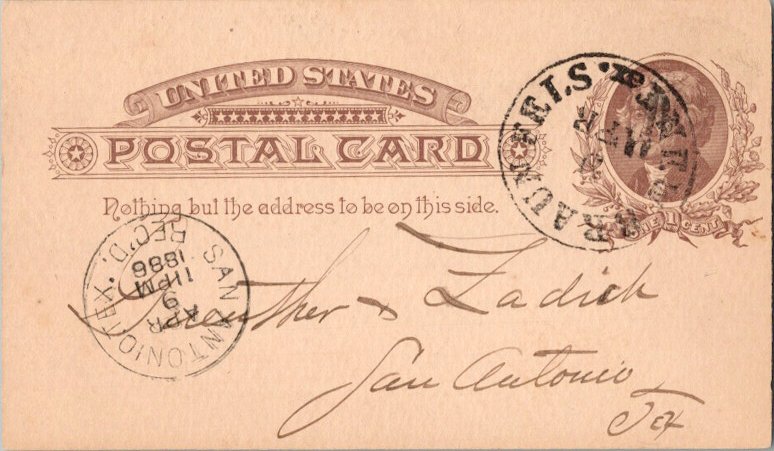 UNITED STATES
POSTAL CARD
Nothing but the address to be on this side.
ONE 1 CENT
BRAUNFELS TEX.
SAN ANTONIO TEX.
REC'D.
1886
11 PM
APR
& Zadich
San Antonio
Tex